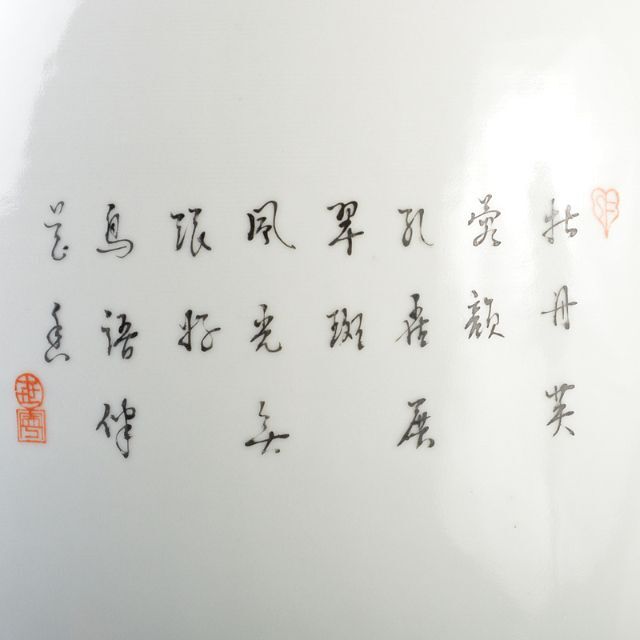 牡丹芙
蓉韻
孔雀展
翠斑
風光無
限好
鳥語伴
花香